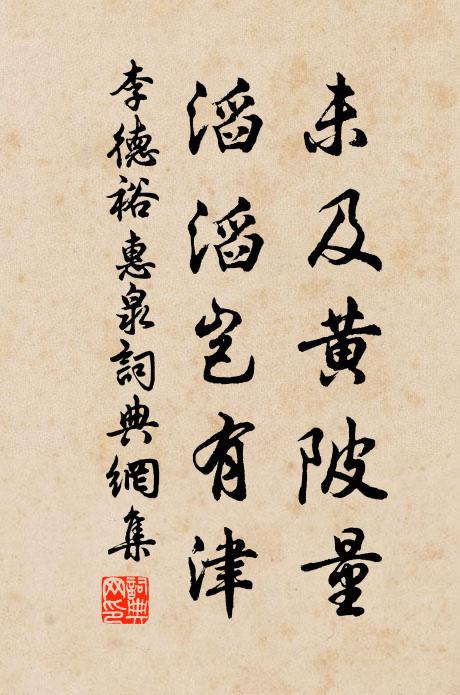 未及黄陂量
滔滔岂有津
李德裕惠泉詞典網集
詞典网印